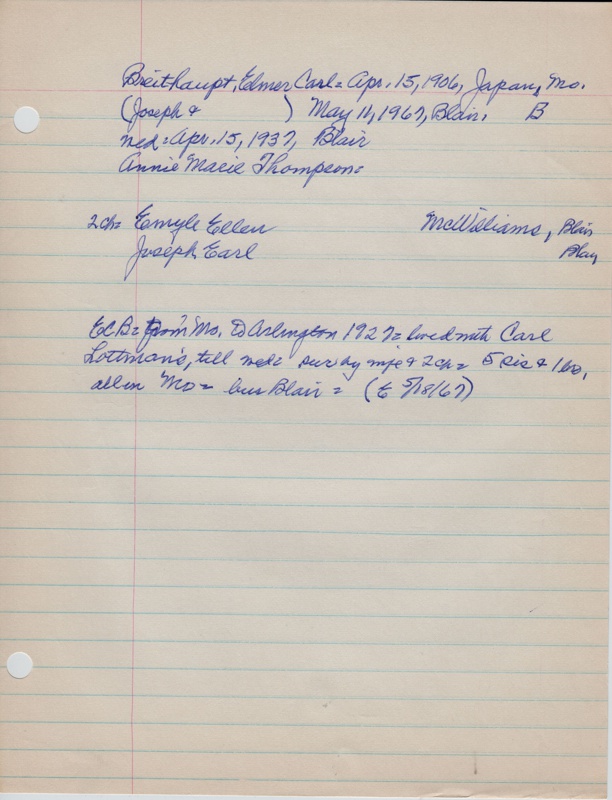 Breithaupt, Elmer Carl = Apr. 15, 1906, Japan, Mo.
(Joseph & ) May 11, 1967, Blair. B
med = Apr. 15, 1937, Blair
Annie Marie Thompson =
2ch = Emyle Ellen McWilliams, Blair
Joseph Earl Blair
ECB = from Mo. to Arlington 1927 = lived with Carl
Lottman's, till med = sur by wife & 2ch = 5 sis & 1 bro,
all in Mo = bur Blair = (E 5/18/67)